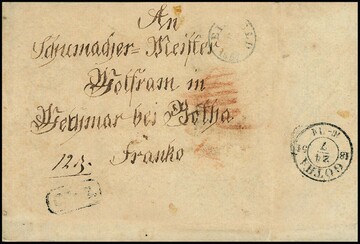 An
Schumacher-Meister
Wolfram in
Wechmar bei Gotha
Franko
GOTHA
24
7